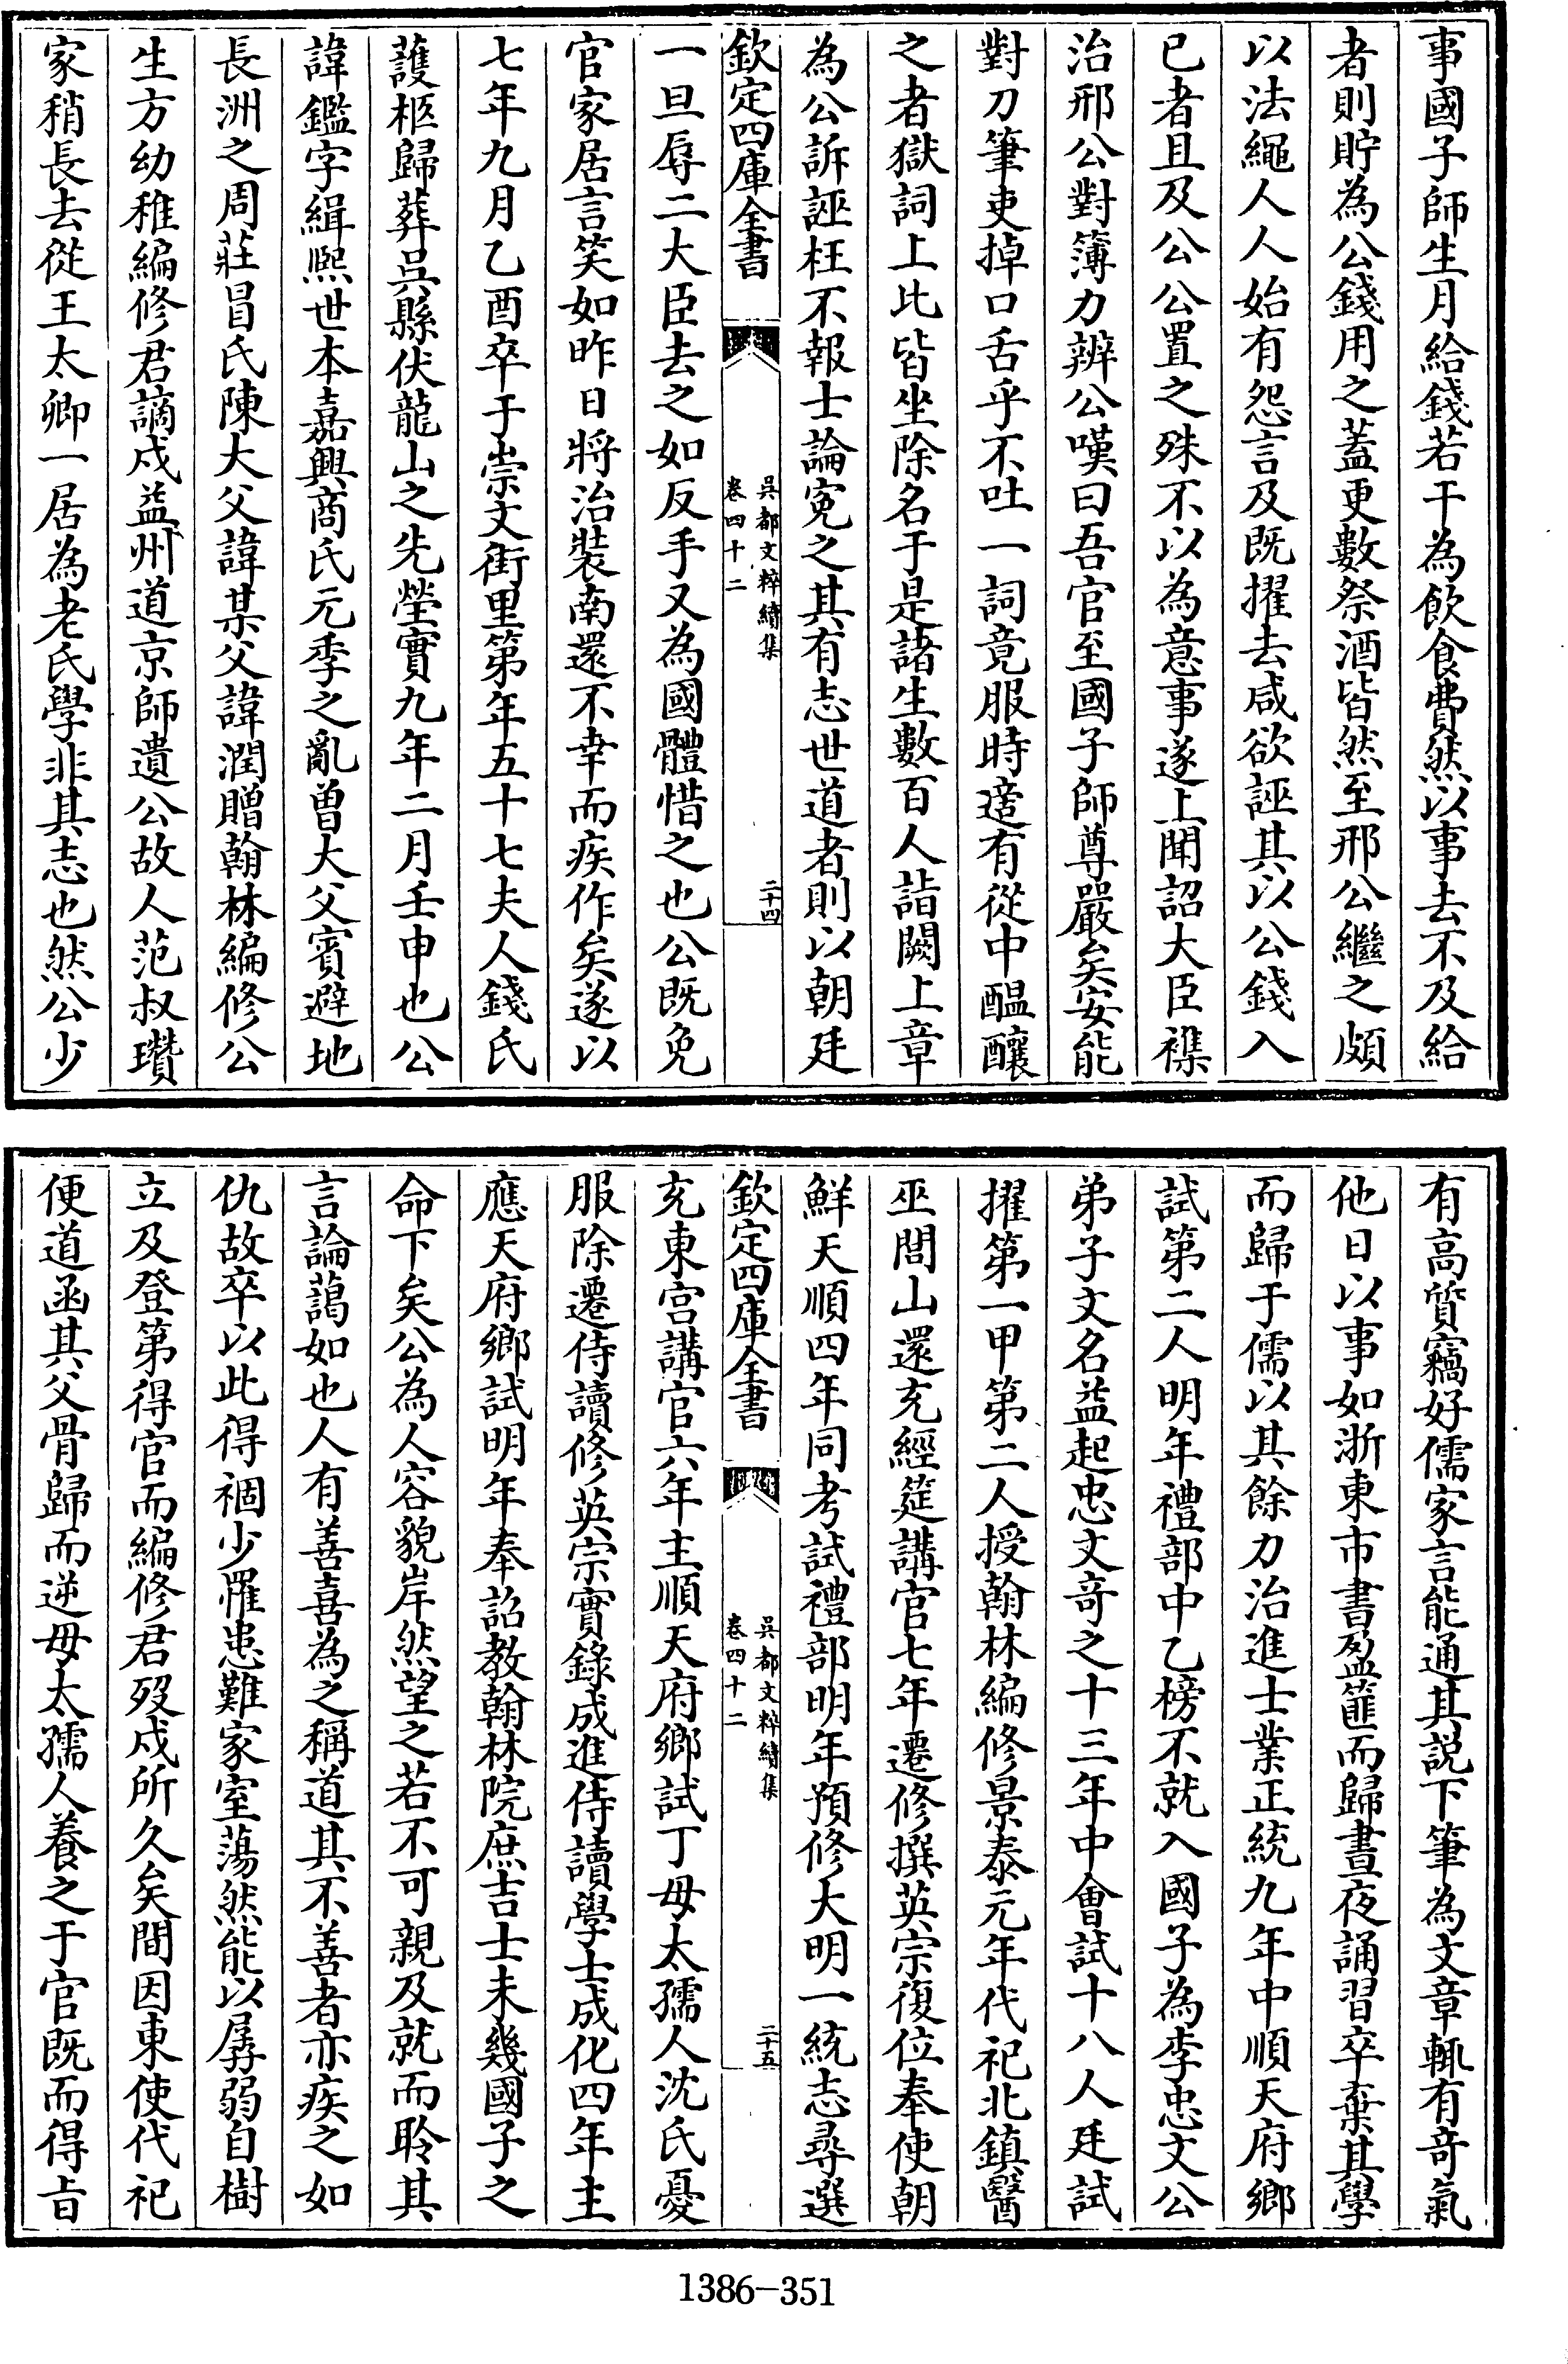 事國子師生月給錢若干為飲食費然以事去不及給
者則貯為公錢用之蓋更數祭酒皆然至邢公繼之頗
以法繩人人始有怨言及既擢去咸欲誣其以公錢入
已者且及公公置之殊不以為意事遂上聞詔大臣襍
治邢公對簿力辨公嘆曰吾官至國子師尊嚴矣安能
對刀筆吏掉口舌乎不吐一詞竟服時遻有從中醞釀
之者獄詞上比皆坐除名于是諸生數百人詣闕上章
為公訴誣枉不報士論寃之其有志世道者則以朝廷
欽定四庫全書
吳都文粹續集
卷四十二
二十四
一旦辱二大臣去之如反手又為國體惜之也公既免
官家居言笑如昨日將治裝南還不幸而疾作矣遂以
七年九月乙酉卒于崇文街里第年五十七夫人錢氏
護柩歸葬吳縣伏龍山之先塋實九年二月壬申也公
諱鑑字緝熙世本嘉興商氏元季之亂曽大父賓避地
長洲之周莊冒氏陳大父諱某父諱潤贈翰林編修公
生方幼稚編修君謫戍益州道京師遺公故人范叔瓚
家稍長去從王太卿一居為老氏學非其志也然公少
有高質竊好儒家言能通其説下筆為文章輒有竒氣
他日以事如浙東市書盈篚而歸晝夜誦習卒棄其學
而歸于儒以其餘力治進士業正統九年中順天府鄉
試第二人明年禮部中乙榜不就入國子為李忠文公
弟子文名益起忠文竒之十三年中會試十八人廷試
擢第一甲第二人授翰林編修景泰元年代祀北鎮醫
巫閭山還充經筵講官七年遷修撰英宗復位奉使朝
鮮天順四年同考試禮部明年預修大明一統志尋選
欽定四庫全書
吳都文粹續集
卷四十二
二十五
充東宫講官六年主順天府鄉試丁母太孺人沈氏憂
服除遷侍讀修英宗實錄成進侍讀學士成化四年主
應天府鄉試明年奉詔教翰林院庶吉士未幾國子之
命下矣公為人容貌岸然望之若不可親及就而聆其
言論藹如也人有善喜為之稱道其不善者亦疾之如
仇故卒以此得禍少罹患難家室蕩然能以孱弱自樹
立及登第得官而編修君歿戍所久矣間因東使代祀
便道函其父骨歸而逆母太孺人養之于官既而得㫖
1386-351